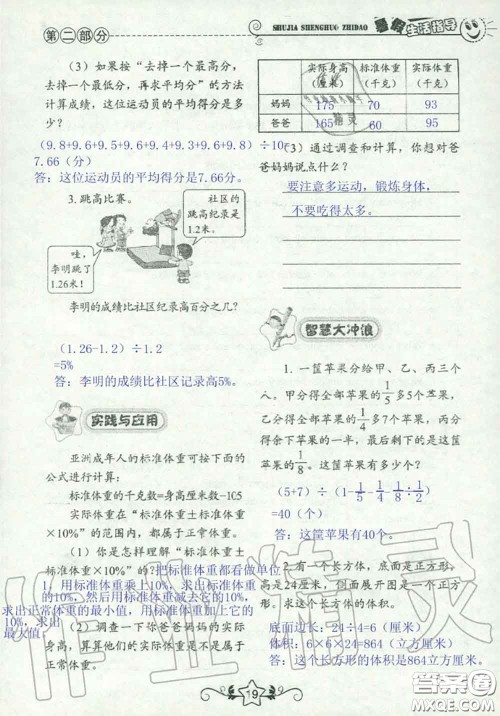 第二部分
SHUJIA SHENGHUO ZHIDAO
暑假生活指导
（3）如果按“去掉一个最高分，
去掉一个最低分，再求平均分”的方法
计算成绩，这位运动员的平均得分是多
少？
(9.8+9.6+9.5+9.6+9.4+9.3+9.6+9.8)÷10
7.66（分）
答：这位运动员的平均得分是7.66分。
3. 跳高比赛。
社区的
跳高纪录是
1.2米。
哇，
李明跳了
1.26米！
李明的成绩比社区纪录高百分之几？
（1.26-1.2）÷1.2
=5%
答：李明的成绩比社区记录高5%。
实践与应用
亚洲成年人的标准体重可按下面的
公式进行计算：
标准体重的千克数=身高厘米数-105
实际体重在“标准体重±标准体重
×10%”的范围内，都属于正常体重。
（1）你是怎样理解“标准体重±
标准体重×10%”的？把标准体重都看做单位
1，用标准体重乘上10%，
10%，然后用标准体重减去它的10%，
求出正常体重的最小值，用标准体重加上它的
10%，求出
最大值。
（2）调查一下你爸爸妈妈的实际
身高，算算他们的实际体重是不是属于
正常体重。
实际身高（厘米） 标准体重（千克） 实际体重（千克）
妈妈 175 70 93
爸爸 165 60 95
（3）通过调查和计算，你想对爸
爸妈妈说点什么？
要注意多运动，锻炼身体，
不要吃得太多。
智慧大冲浪
1. 一筐苹果分给甲、乙、丙三个
人。甲分得全部苹果的1/5多5个苹果，
乙分得全部苹果的1/4多7个苹果，丙分得
其余苹果的一半，最后剩下的是这筐苹
果的1/8。这筐苹果有多少个？
（5+7）÷（1-1/5-1/4-1/8÷1/2）
=40（个）
答：这筐苹果有40个。
2. 有一个长方体，底面是正方形，
高是24厘米，侧面展开图是一个正方
形。求这个长方体的体积。
底面边长：24÷4=6（厘米）
体积：6×6×24=864（立方厘米）
答：这个长方体的体积是864立方厘米。
19
作业精灵
答案圈
MXQE.COM